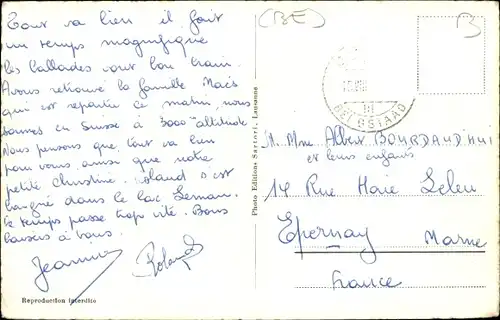 Tout va bien il fait
un temps magnifique
les ballades vont bon train.
Avons retrouvé la famille Mais
qui est repartie ce matin, nous
sommes en Suisse à 3000 altitude.
Nous pensons que tout va bien
pour vous ainsi que notre
petite Christine. Roland s'est
baigné dans le lac Leman.
Le temps passe trop vite. Bons
baisers à tous.
Jeannine Roland
Reproduction interdite
Photo Edition Sartori, Lausanne
(BE)
B
GSTAAD
M. Mme Albert
et leurs enfants
14 Rue Leleu
Epernay Marne
France